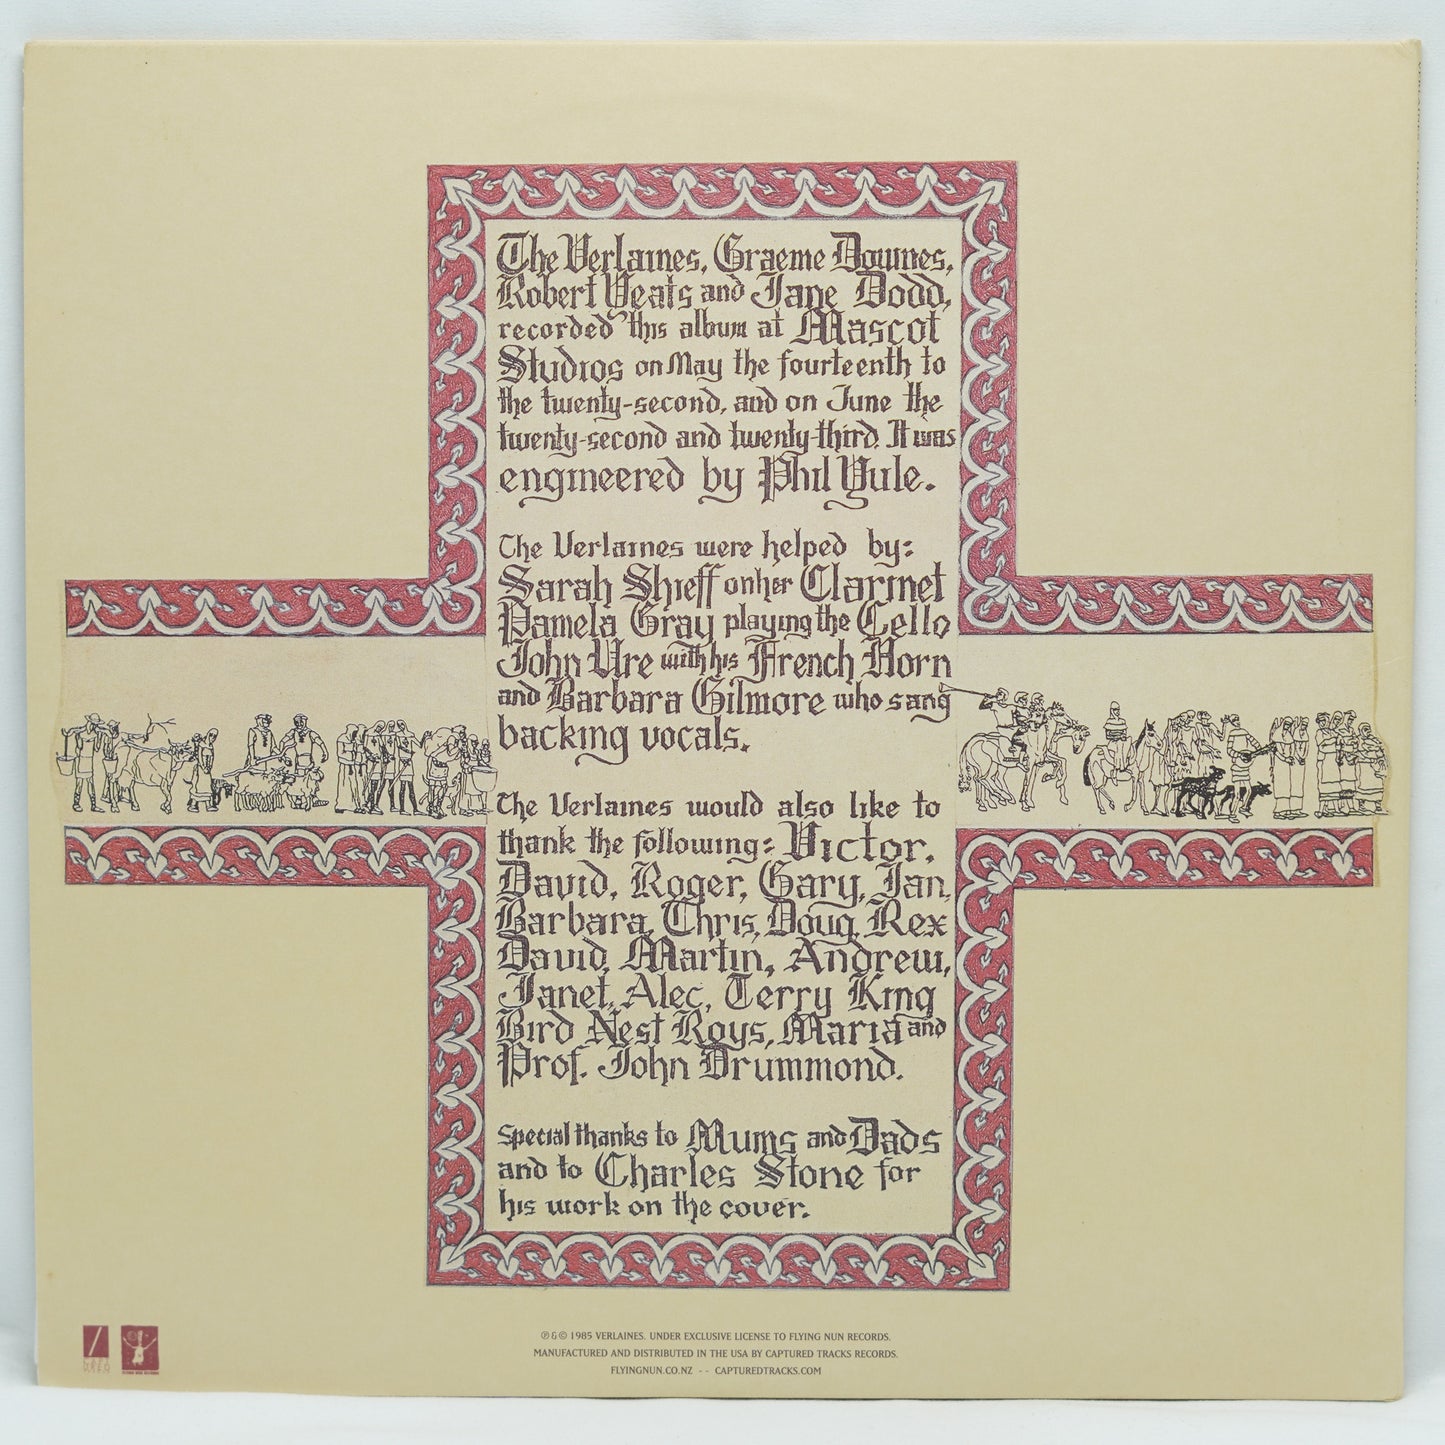 The Verlaines, Graeme Downes,
Robert Yeats and Jane Dodd,
recorded this album at Mascot
Studios on May the fourteenth to
the twenty-second, and on June the
twenty-second and twenty-third. It was
engineered by Phil Yule.
The Verlaines were helped by:
Sarah Shieff on her Clarinet
Pamela Gray playing the Cello
John Ure with his French Horn
and Barbara Gilmore who sang
backing vocals.
The Verlaines would also like to
thank the following: Victor,
David, Roger, Gary, Ian,
Barbara, Chris, Doug, Rex
David, Martin, Andrew,
Janet, Alec, Terry King
Bird Nest Roys, Maria and
Prof. John Drummond.
Special thanks to Mums and Dads
and to Charles Stone for
his work on the cover.
℗ & © 1985 VERLAINES. UNDER EXCLUSIVE LICENSE TO FLYING NUN RECORDS.
MANUFACTURED AND DISTRIBUTED IN THE USA BY CAPTURED TRACKS RECORDS.
FLYINGNUN.CO.NZ -- CAPTUREDTRACKS.COM